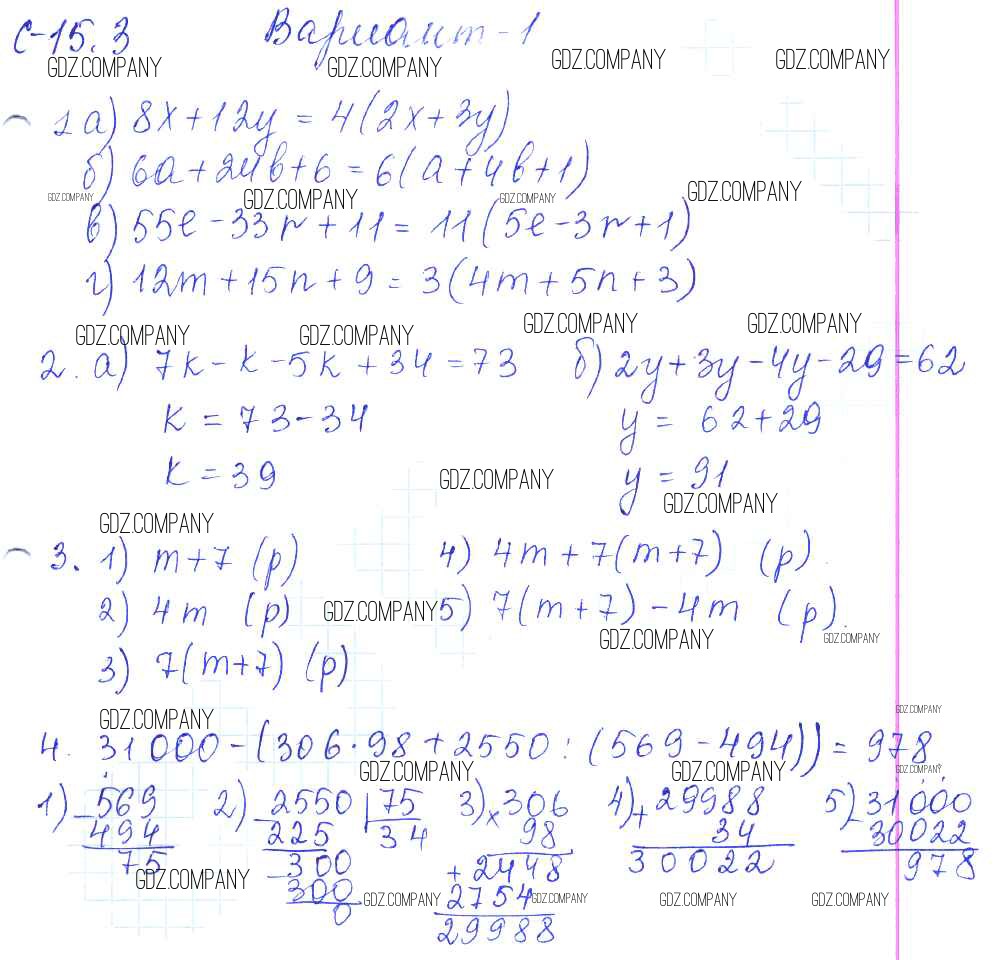 С-15.3 Вариант-1
GDZ.COMPANY GDZ.COMPANY GDZ.COMPANY GDZ.COMPANY
1 а) 8x+12y = 4(2x+3y)
б) 6a+24b+6 = 6(a+4b+1)
GDZ.COMPANY GDZ.COMPANY GDZ.COMPANY GDZ.COMPANY
в) 55l-33n+11 = 11(5l-3n+1)
г) 12m+15n+9 = 3(4m+5n+3)
GDZ.COMPANY GDZ.COMPANY GDZ.COMPANY GDZ.COMPANY
2. а) 7k-k-5k+34=73 б) 2y+3y-4y-29=62
k = 73-34 y = 62+29
k = 39 GDZ.COMPANY y = 91
GDZ.COMPANY GDZ.COMPANY
3. 1) m+7 (р) 4) 4m+7(m+7) (р)
2) 4m (р) GDZ.COMPANY 5) 7(m+7)-4m (р).
GDZ.COMPANY GDZ.COMPANY
3) 7(m+7) (р)
GDZ.COMPANY GDZ.COMPANY
4. 31000-(306·98+2550:(569-494)) = 978
GDZ.COMPANY GDZ.COMPANY GDZ.COMPANY
1) -569 2) -2550 |75 3) ×306 4) +29988 5) -31000
494 225 34 98 34 30022
75 -300 +2448 30022 978
GDZ.COMPANY 300 2754 GDZ.COMPANY GDZ.COMPANY GDZ.COMPANY GDZ.COMPANY
0 29988